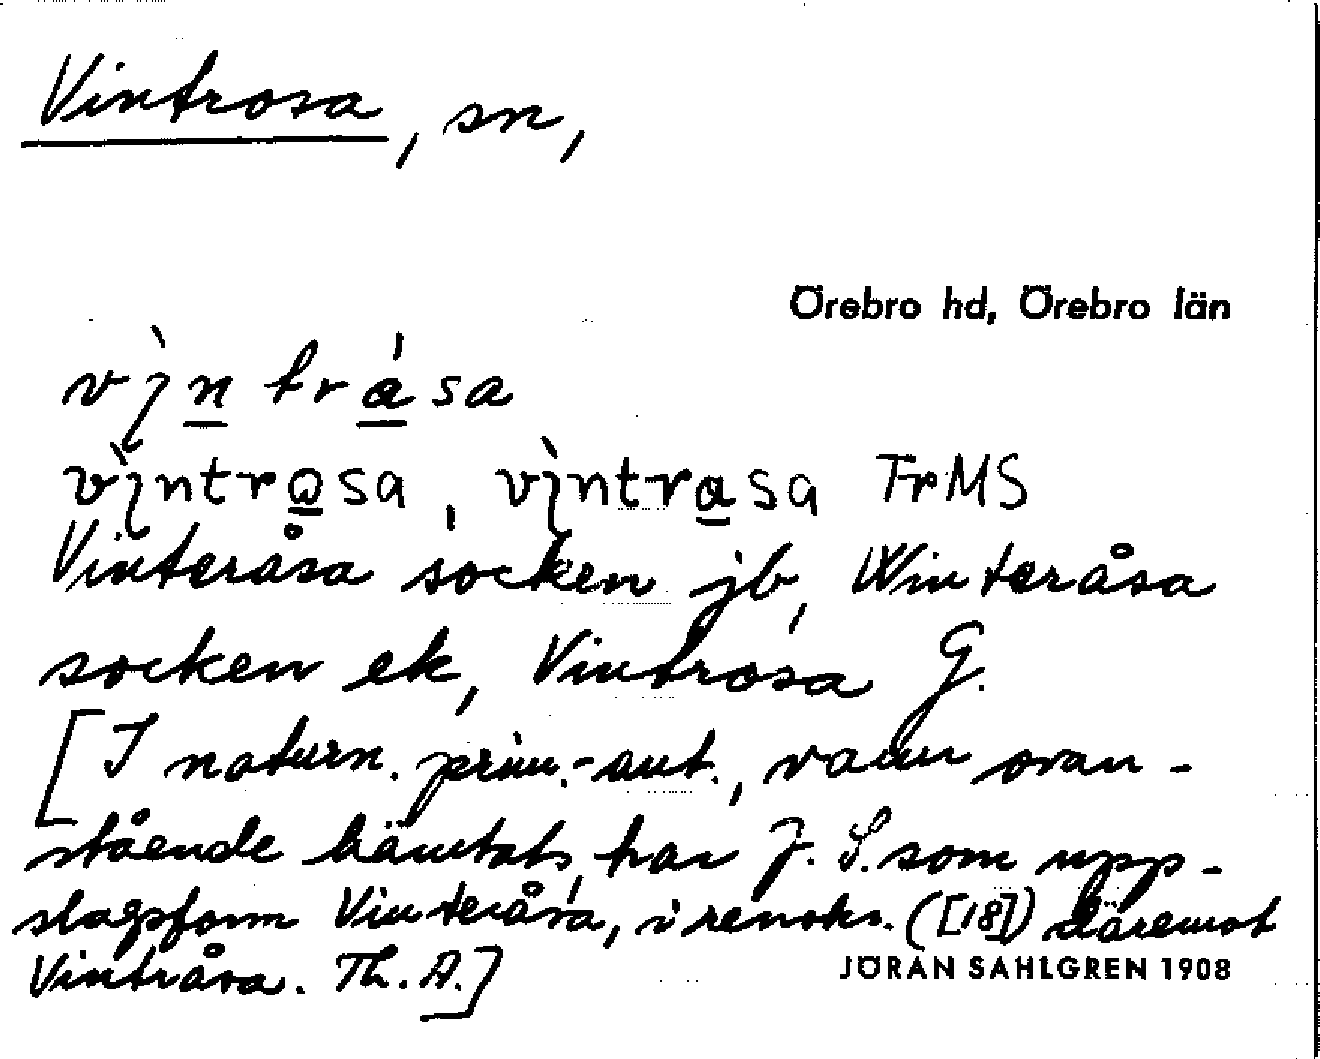 Vintrosa, sn,
Örebro hd, Örebro län
vintrosa, vintrasa FrMS
Vinteråsa socken jb, Winteråsa
socken ek, Vintrosa G.
[I naturn. prim.-ant., varur ovan-
stående hämtats, har J. S. som upp-
slagsform Vinteråsa, i renskr. ([18]) däremot
Vintråsa. Th. A.]
JÖRAN SAHLGREN 1908